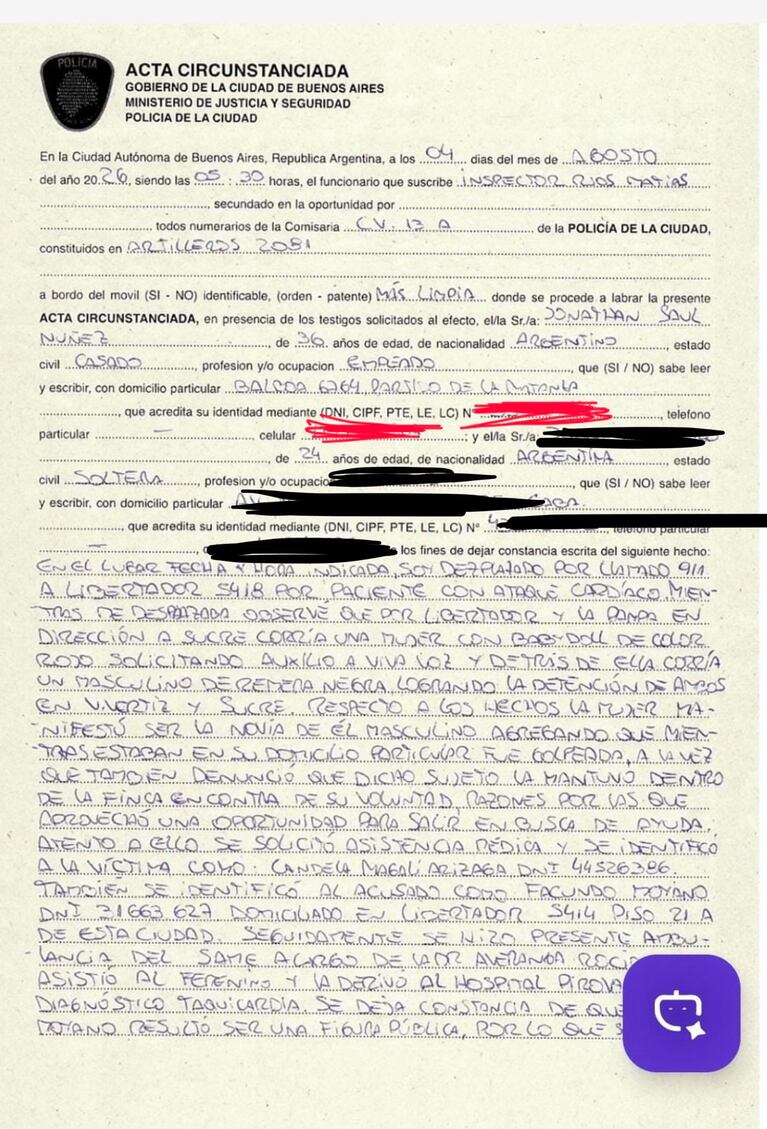 POLICIA
ACTA CIRCUNSTANCIADA
GOBIERNO DE LA CIUDAD DE BUENOS AIRES
MINISTERIO DE JUSTICIA Y SEGURIDAD
POLICIA DE LA CIUDAD
En la Ciudad Autónoma de Buenos Aires, Republica Argentina, a los 04 dias del mes de AGOSTO
del año 2026, siendo las 05 : 30 horas, el funcionario que suscribe INSPECTOR RIOS MATIAS
, secundado en la oportunidad por
, todos numerarios de la Comisaria C.V. 13 A de la POLICÍA DE LA CIUDAD,
constituidos en ARTILLEROS 2081
a bordo del movil (SI - NO) identificable, (orden - patente) MÁS LIMPIA donde se procede a labrar la presente
ACTA CIRCUNSTANCIADA, en presencia de los testigos solicitados al efecto, el/la Sr./a: JONATHAN SAUL
NUÑEZ, de 36 años de edad, de nacionalidad ARGENTINO, estado
civil CASADO, profesion y/o ocupacion EMPLEADO, que (SI / NO) sabe leer
y escribir, con domicilio particular 6764 PARTIDO DE LA MATANZA
, que acredita su identidad mediante (DNI, CIPF, PTE, LE, LC) N°, telefono
particular — celular ; y el/la Sr./a:
, de 24 años de edad, de nacionalidad ARGENTINA, estado
civil SOLTERA, profesion y/o ocupacio , que (SI / NO) sabe leer
y escribir, con domicilio particular AV CABA
, que acredita su identidad mediante (DNI, CIPF, PTE, LE, LC) N° 4 telefono particular
— los fines de dejar constancia escrita del siguiente hecho:
EN EL LUGAR FECHA Y HORA INDICADA, SOY DEZPLAZADO POR LLAMADO 911
A LIBERTADOR 5418 POR PACIENTE CON ATAQUE CARDÍACO. MIEN-
TRAS ME DESPLAZABA OBSERVE QUE POR LIBERTADOR Y LA PAMPA EN
DIRECCIÓN A SUCRE CORRÍA UNA MUJER CON BABYDOLL DE COLOR
ROJO SOLICITANDO AUXILIO A VIVA VOZ Y DETRÁS DE ELLA CORRÍA
UN MASCULINO DE REMERA NEGRA, LOGRANDO LA DETENCIÓN DE AMBOS
EN V. VERTIZ Y SUCRE. RESPECTO A LOS HECHOS LA MUJER MA-
NIFESTÓ SER LA NOVIA DE ÉL MASCULINO AGREGANDO QUE MIEN-
TRAS ESTABAN EN SU DOMICILIO PARTICULAR FUE GOLPEADA, A LA VEZ
QUE TAMBIEN DENUNCIO QUE DICHO SUJETO LA MANTUVO DENTRO
DE LA FINCA EN CONTRA DE SU VOLUNTAD, RAZONES POR LAS QUE
APROVECHÓ UNA OPORTUNIDAD PARA SALIR EN BUSCA DE AYUDA.
ATENTO A ELLO SE SOLICITÓ ASISTENCIA MÉDICA Y SE IDENTIFICO
A LA VÍCTIMA COMO: CANDELA MAGALI ARIZAGA DNI 44526386.
TAMBIEN SE IDENTIFICÓ AL ACUSADO COMO FACUNDO MOYANO
DNI 31663627 DOMICILIADO EN LIBERTADOR 5414 PISO 21 A
DE ESTA CIUDAD. SEGUIDAMENTE SE HIZO PRESENTE AMBU-
LANCIA DEL SAME A CARGO DE LA DR AVERANGA
ASISTIÓ AL FEMENINO Y LA DERIVO AL HOSPITAL
DIAGNÓSTICO TAQUICARDIA. SE DEJA CONSTANCIA DE QUE
MOYANO RESULTÓ SER UNA FIGURA PÚBLICA, POR LO QUE